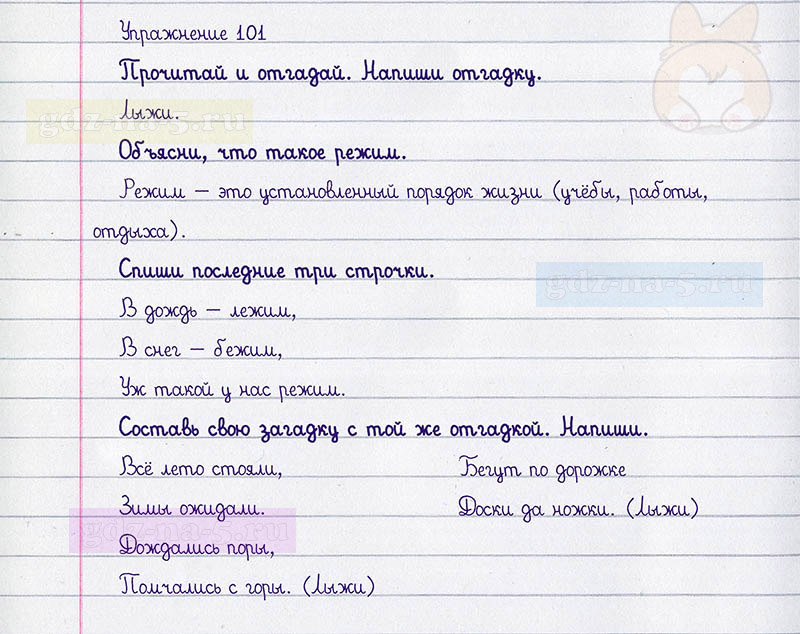 Упражнение 101
Прочитай и отгадай. Напиши отгадку.
Лыжи.
gdz-na-5.ru
Объясни, что такое режим.
Режим – это установленный порядок жизни (учёбы, работы,
отдыха).
Спиши последние три строчки.
gdz-na-5.ru
В дождь – лежим,
В снег – бежим,
Уж такой у нас режим.
Составь свою загадку с той же отгадкой. Напиши.
Всё лето стояли,
Зимы ожидали.
gdz-na-5.ru
Дождались поры,
Помчались с горы. (Лыжи)
Бегут по дорожке
Доски да ножки. (Лыжи)